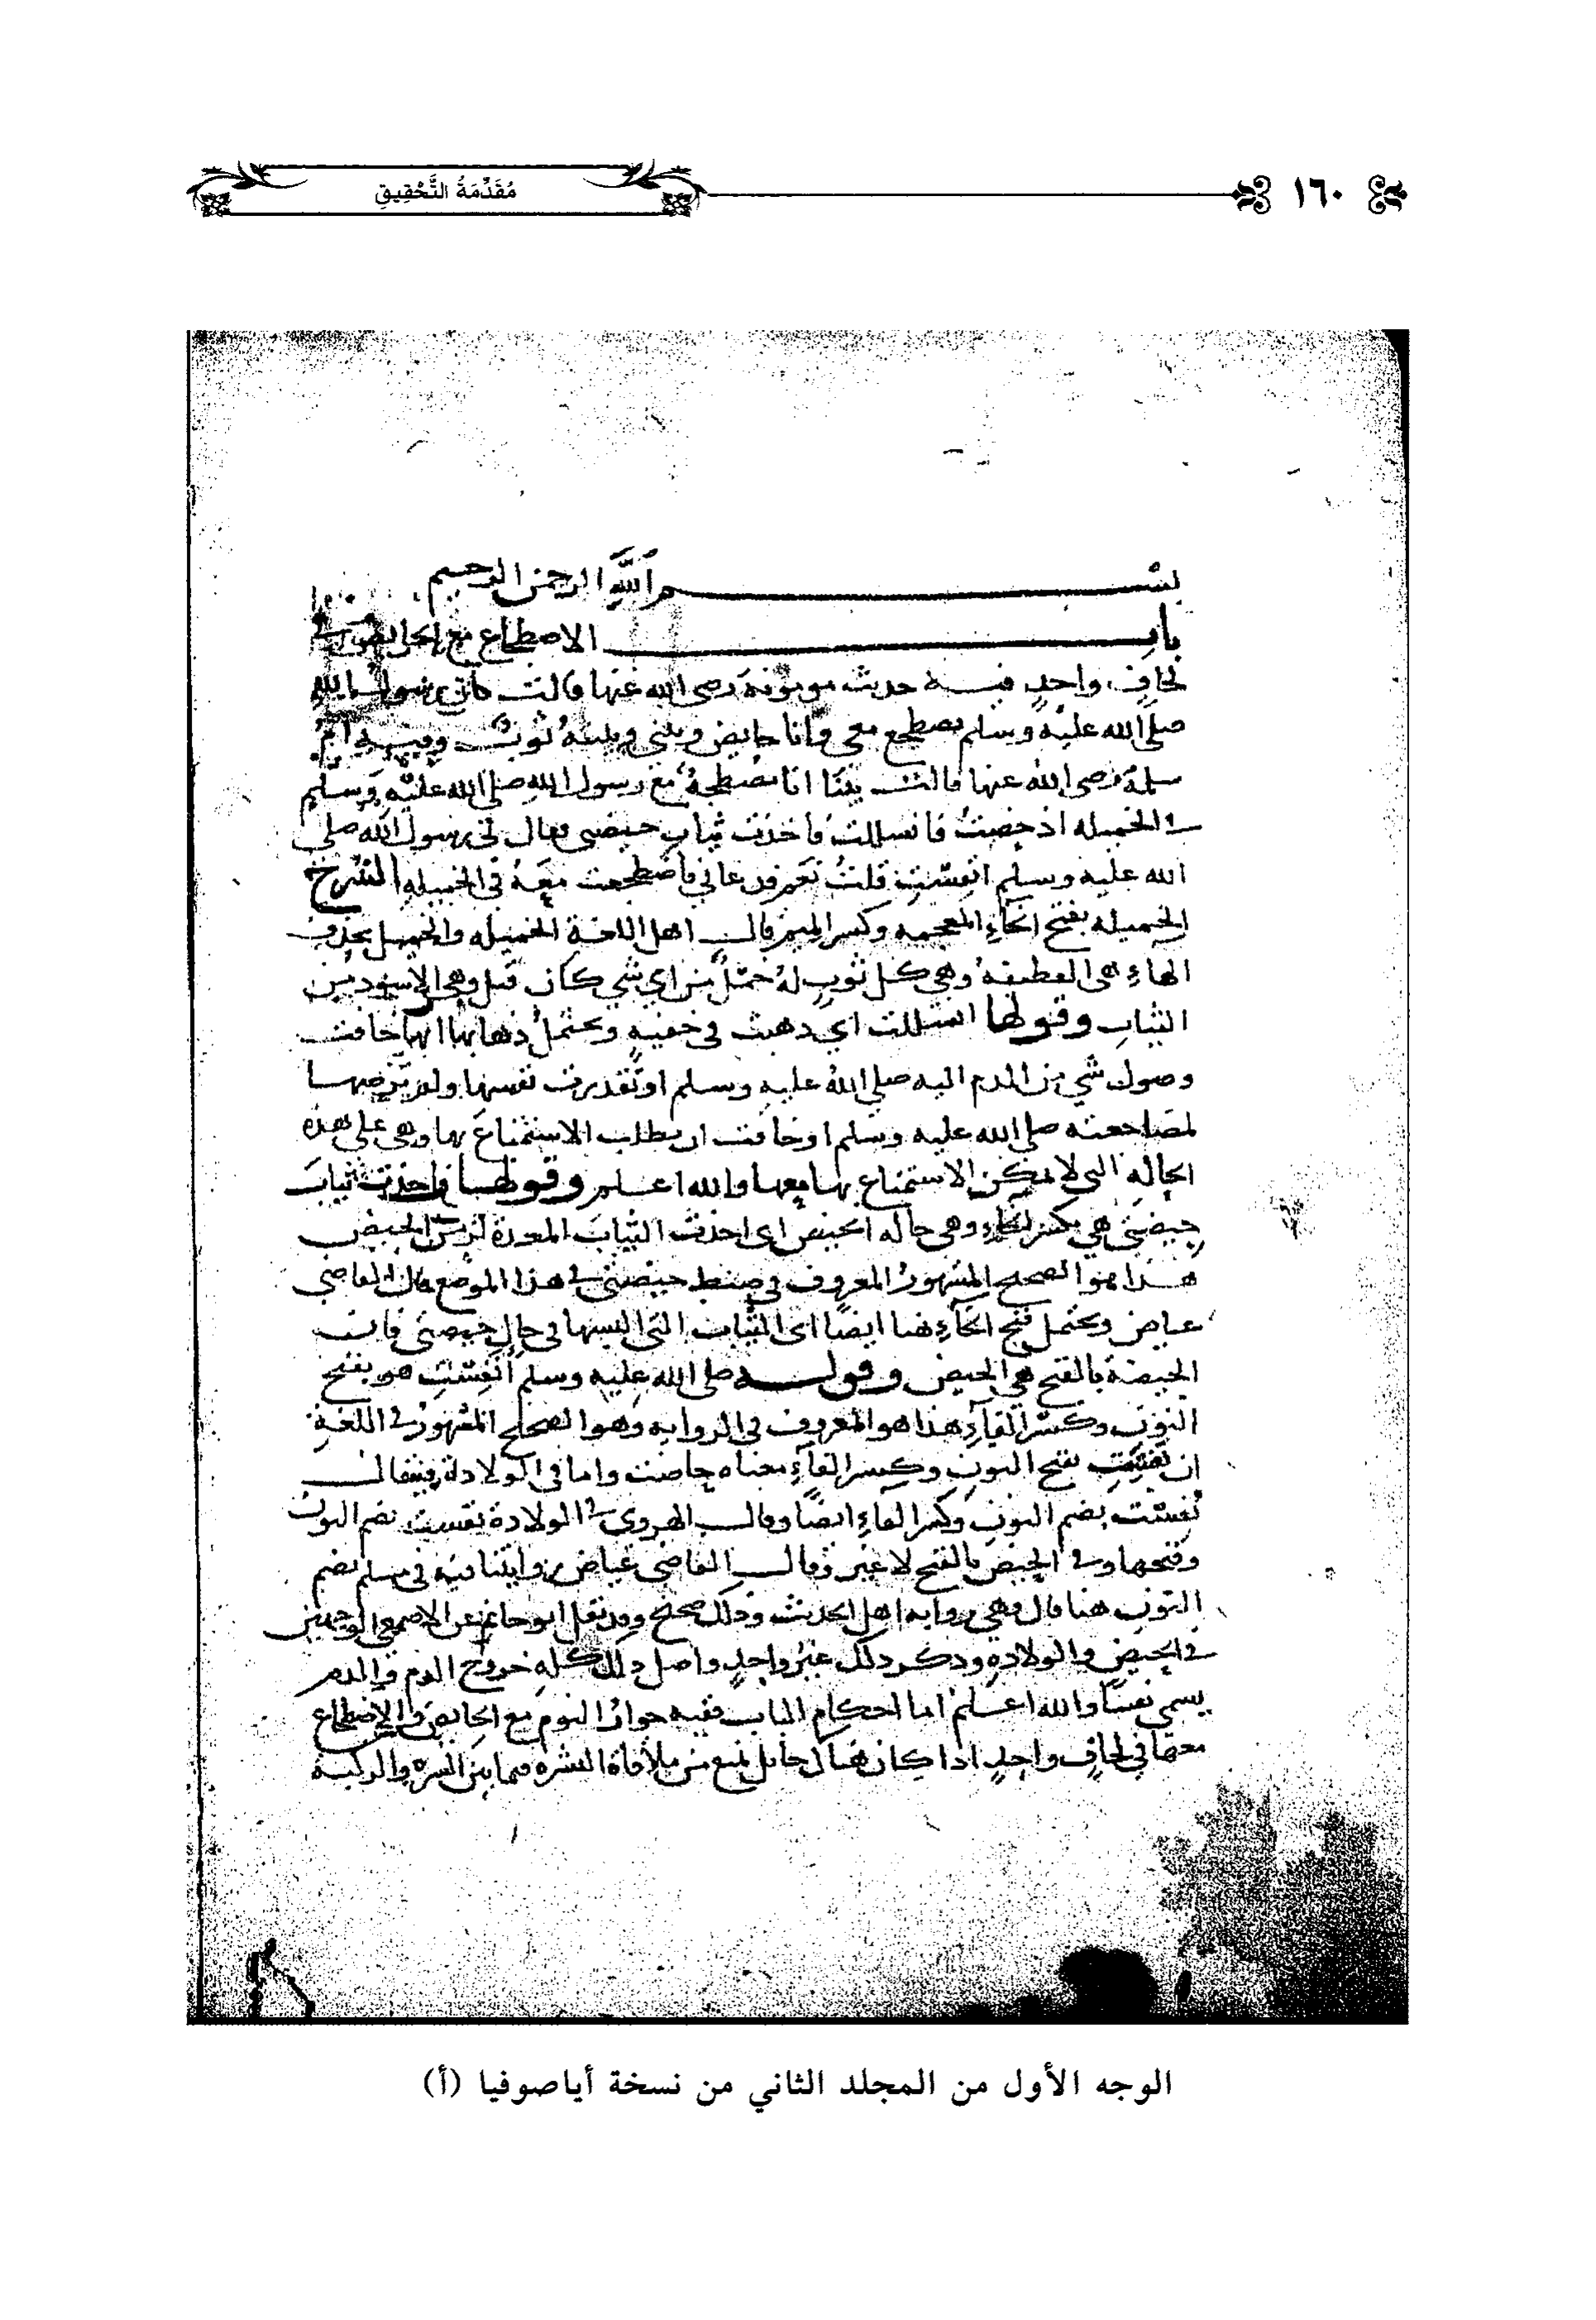 ١٦٠
مُقَدِّمَةُ التَّحْقِيقِ
بسم الله الرحمن الرحيم
باب الاضطجاع مع الحايض في
لحاف واحد فيه حديث ميمونة رضي الله عنها قالت كان رسول الله
صلى الله عليه وسلم يضطجع معي وأنا حايض وبيني وبينه ثوب وفيه أم
سلمة رضي الله عنها قالت بينا انا مضطجعة مع رسول الله صلى الله عليه وسلم
في الخميله اذ حضت فانسللت فأخذت ثياب حيضتي فقال لي رسول الله صلى
الله عليه وسلم انفست قلت نعم فدعاني فاضطجعت معه في الخميله الشرح
الخميله بفتح الخاء المعجمه وكسر الميم قال اهل اللغة الخميله والخميل بحذف
الهاء هي القطيفه وهي كل ثوب له خمل من اي شي كان وقيل هي الاسود من
الثياب وقولها انسللت اي ذهبت في خفيه ويحتمل ذهابها انها خافت
وصول شي من الدم اليه صلى الله عليه وسلم او تقذرت نفسها ولم ترضها
لمضاجعته صلى الله عليه وسلم او خافت ان يطلب الاستمتاع بها وهي على هذه
الحاله التي لا يمكن الاستمتاع بها معها والله اعلم وقولها فاخذت ثياب
حيضتي هي بكسر الحاء وهي حاله الحيض اي اخذت الثياب المعدة لزمن الحيض
هذا هو الصحيح المشهور المعروف في ضبط حيضتي في هذا الموضع قال القاضي
عياض ويحتمل فتح الحاء هنا ايضا اي الثياب التي البسها في حال حيضتي فان
الحيضة بالفتح هي الحيض وقوله صلى الله عليه وسلم أنفست هو بفتح
النون وكسر الفاء هذا هو المعروف في الروايه وهو الصحيح المشهور في اللغة
ان نفست بفتح النون وكسر الفاء معناه حاضت واما في الولادة فيقال
نُفست بضم النون وكسر الفاء ايضا وقال الهروي في الولادة نفست بضم النون
وفتحها وفي الحيض بالفتح لا غير وقال القاضي عياض روايتنا فيه في مسلم بضم
النون هنا قال وهي رواية اهل الحديث وذلك صحيح وقد نقل ابو حاتم عن الاصمعي الوجهين
في الحيض والولادة وذكر ذلك غير واحد واصل ذلك كله خروج الدم والدم
يسمى نفسا والله اعلم اما احكام الباب ففيه جواز النوم مع الحايض والاضطجاع
معها في لحاف واحد اذا كان هناك حائل يمنع من ملاقاة البشره فيما بين السره والركبة
الوجه الأول من المجلد الثاني من نسخة أياصوفيا (أ)